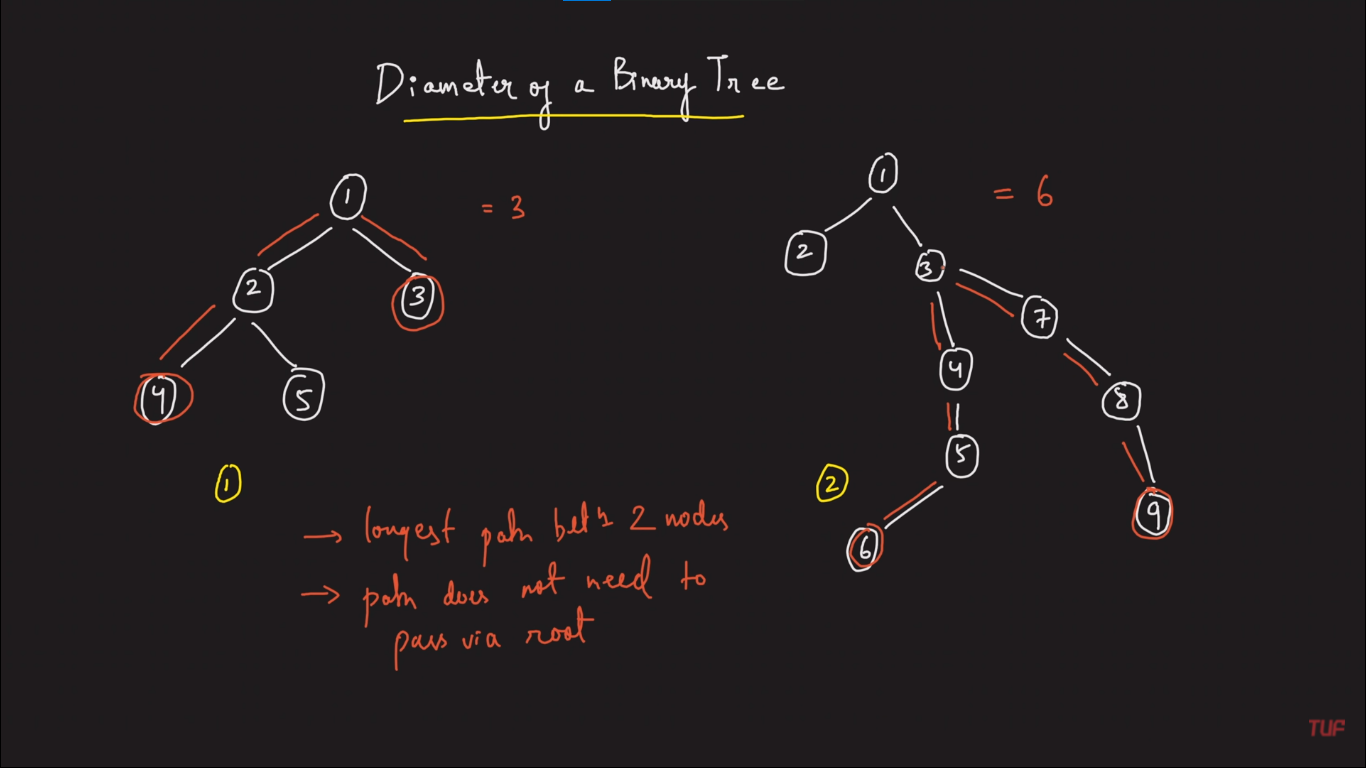 Diameter of a Binary Tree
1
= 3
2
3
4
5
①
1
= 6
2
3
7
4
8
5
9
6
②
→ longest path betn 2 nodes
→ path does not need to
pass via root
TUF